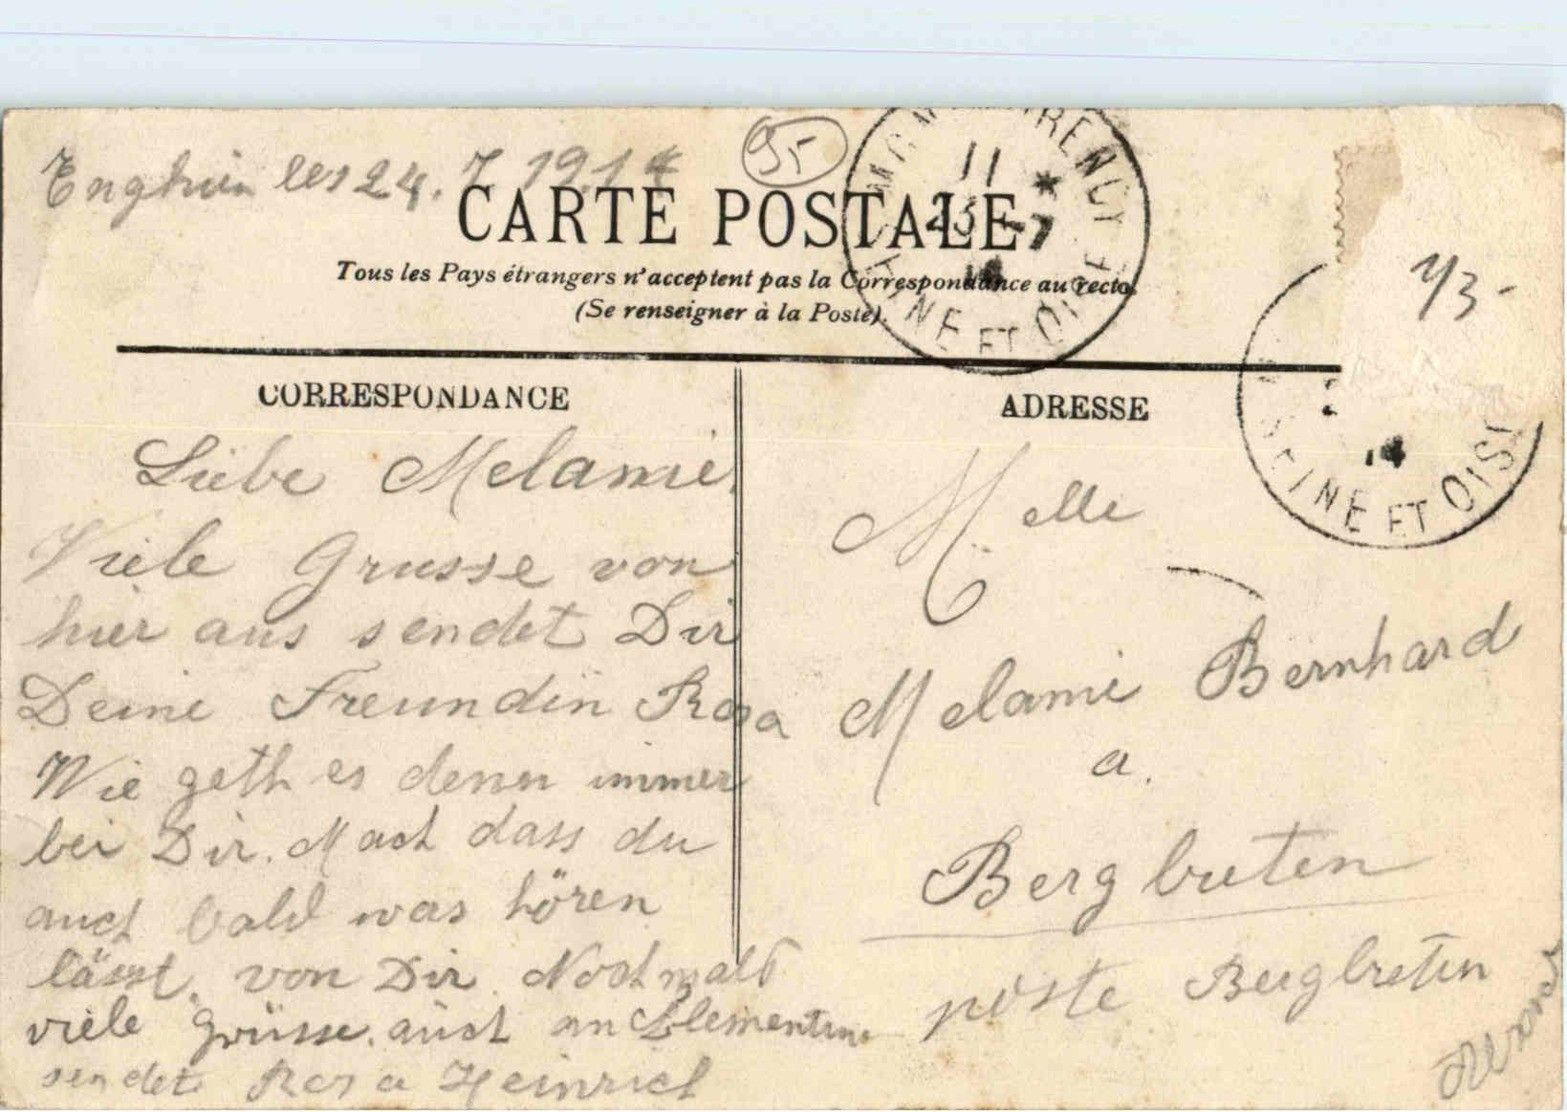 Enghien les 24. 7 1914
95
11 *
25 -7
14
SEINE ET OISE
CARTE POSTALE
Tous les Pays étrangers n'acceptent pas la Correspondance au recto.
(Se renseigner à la Poste).
Y3-
14
SEINE ET OISE
CORRESPONDANCE
Liebe Melanie,
Viele Grusse von
hier aus sendet Dir
Deine Freundin Rosa
Wie geth es denn immer
bei Dir. Mach dass du
auch bald was hören
lässt von Dir. Nochmals
viele Grüsse. auch an Clementine
sendet Rosa Heinrich
ADRESSE
Melle
Melanie Bernhard
a.
Bergbieten
poste Bergbieten